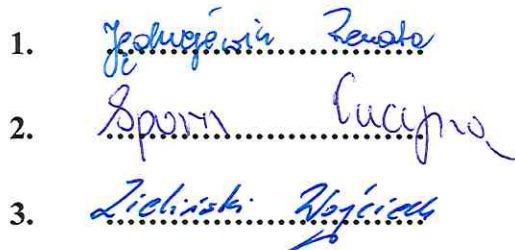 1. Jędrzejewicz Renata
2. Sporn Lucyna
3. Zieliński Wojciech